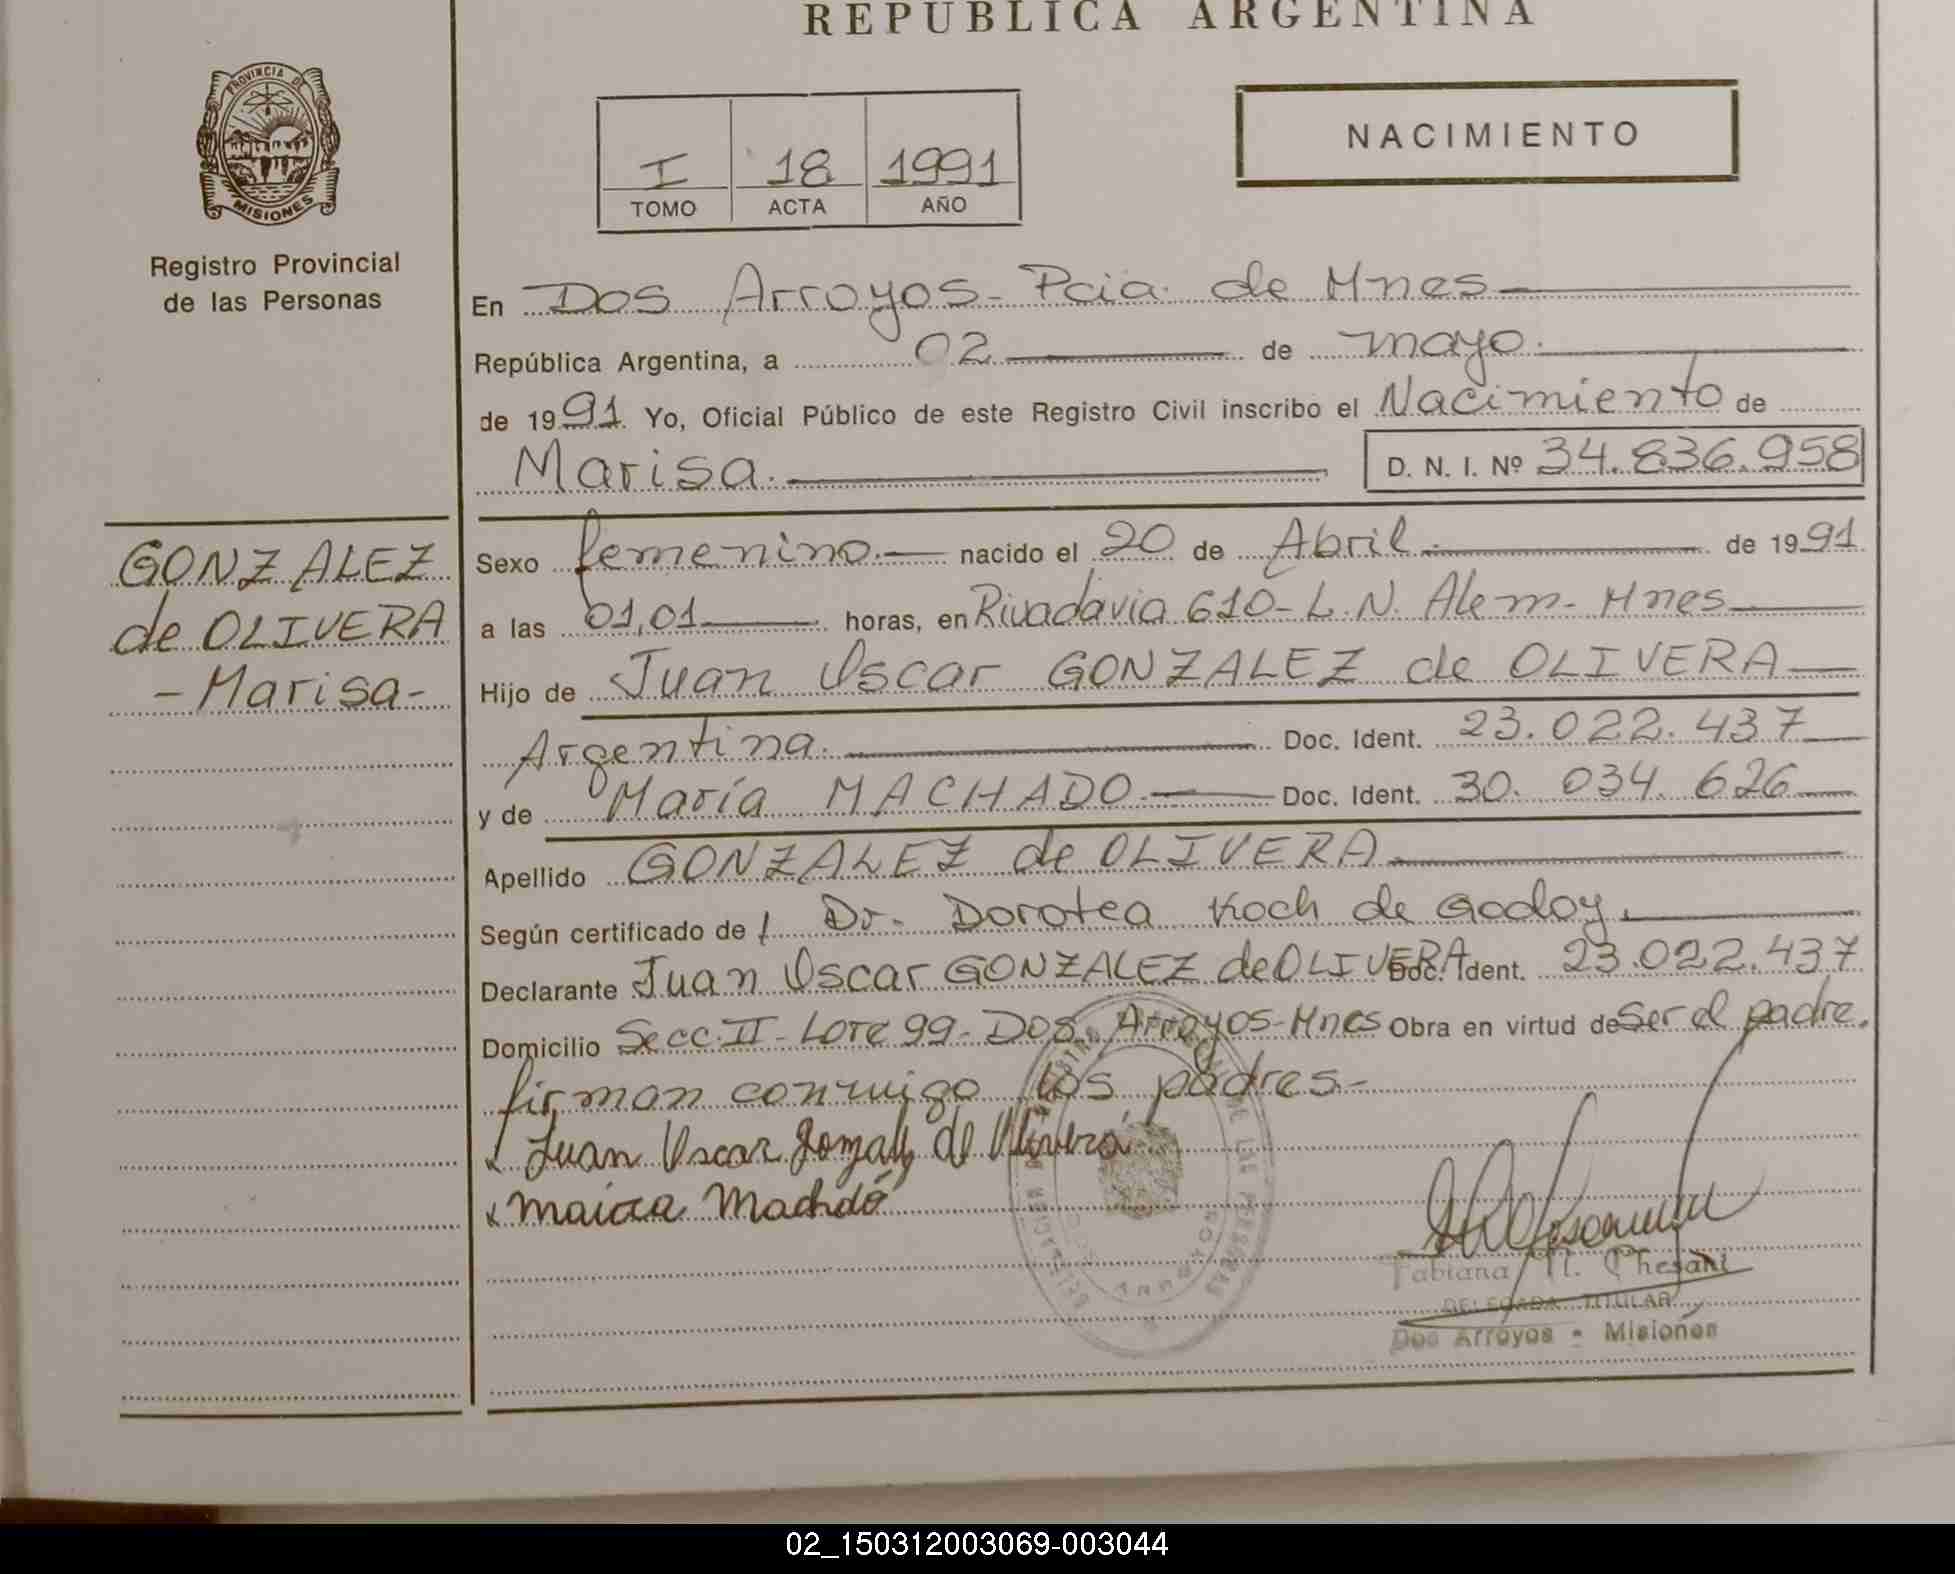 REPUBLICA ARGENTINA
PROVINCIA DE
MISIONES
Registro Provincial
de las Personas
I 18 1991
TOMO ACTA AÑO
NACIMIENTO
En Dos Arroyos - Pcia. de Mnes
República Argentina, a 02 de mayo.
de 1991. Yo, Oficial Público de este Registro Civil inscribo el Nacimiento de
Marisa. D. N. I. Nº 34.836.958
GONZALEZ
de OLIVERA
- Marisa -
Sexo femenino. nacido el 20 de Abril. de 1991
a las 01,01 horas, en Rivadavia 610 - L. N. Alem - Mnes
Hijo de Juan Oscar GONZALEZ de OLIVERA
Argentina. Doc. Ident. 23.022.437
y de María MACHADO. Doc. Ident. 30.034.626
Apellido GONZALEZ de OLIVERA
Según certificado de Dr. Dorotea Koch de Godoy.
Declarante Juan Oscar GONZALEZ de OLIVERA Doc. Ident. 23.022.437
Domicilio Secc. II - Lote 99 - Dos Arroyos - Mnes Obra en virtud de Ser el padre.
firman conmigo los padres.-
x Juan Oscar de Olivera
x Machdó
Fabiana N. Chesani
DELEGADA TITULAR
Dos Arroyos - Misiones
02_150312003069-003044